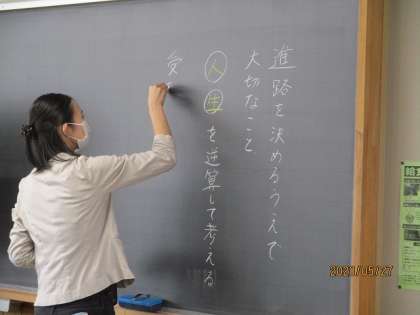 進路を決めるうえで
大切なこと
人生を逆算して考える
2021/05/27